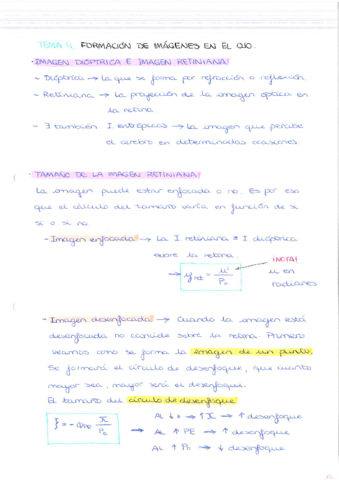 TEMA 4. FORMACIÓN DE IMÁGENES EN EL OJO.
·IMAGEN DIÓPTRICA E IMAGEN RETINIANA
- Dióptrica → La que se forma por refracción o reflexión.
- Retiniana → La proyección de la imagen óptica en
la retina
- ∃ también I. entópticas → La imagen que percibe
el cerebro en determinadas ocasiones.
·TAMAÑO DE LA IMAGEN RETINIANA:
La imagen puede estar enfocada o no. Es por eso
que el cálculo del tamaño varía en función de si
si o si no.
- Imagen enfocada → La I. retiniana ≡ I dióptrica
sobre la retina.
¡NOTA!
→ y'ret = u' / P₀
u en
radianes
- Imagen desenfocada → Cuando la imagen está
desenfocada no coincide sobre la retina. Primero
veamos como se forma la imagen de un punto.
Se formará el círculo de desenfoque, que cuanto
mayor sea, mayor será el desenfoque.
El tamaño del círculo de desenfoque
AL ↓ → ↑X → ↑ desenfoque
ξ = - ΦPE X / P₀ → AL ↑ PE → ↑ desenfoque
AL ↑ P₀ → ↓ desenfoque